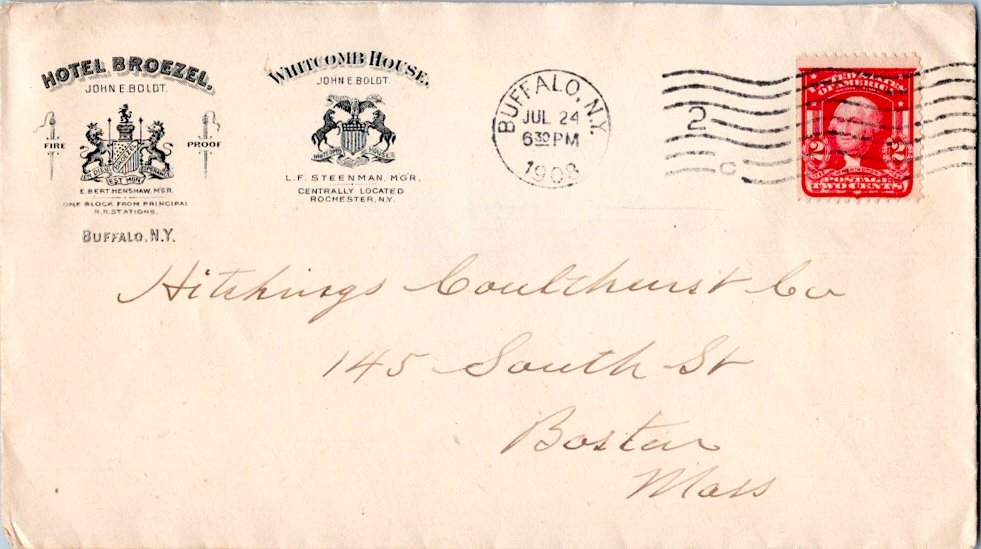 HOTEL BROEZEL.
JOHN E. BOLDT.
FIRE PROOF
EST MON
E. BERT HENSHAW, M'G'R.
ONE BLOCK FROM PRINCIPAL
R.R. STATIONS.
BUFFALO, N.Y.
WHITCOMB HOUSE.
JOHN E. BOLDT.
L.F. STEENMAN, MGR.
CENTRALLY LOCATED
ROCHESTER, N.Y.
BUFFALO, N.Y.
JUL 24
6 30 PM
1908
2
C
UNITED STATES
OF AMERICA
2 2
POSTAGE
TWO CENTS
Hitchings Coulthurst Co
145 South St
Boston
Mass